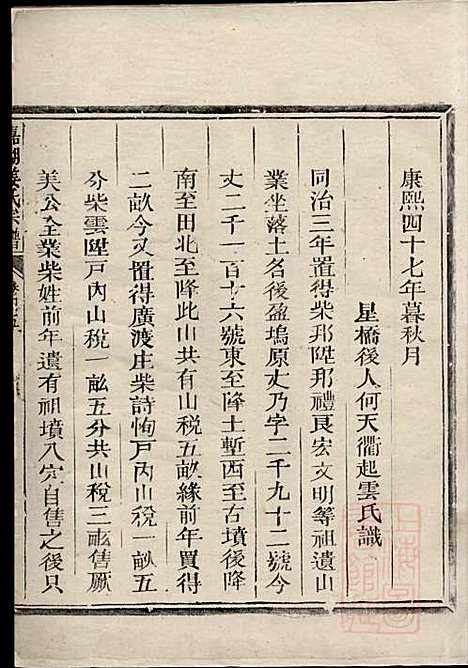 康熙四十七年暮秋月
星橋後人何天衢起雲氏識
同治三年置得柴邦陞邦禮良宏文明等祖遺山
業坐落土名後盈塢原丈乃字二千九十二號今
丈二千一百十六號東至降土塹西至古墳後降
南至田北至降此山共有山稅五畝緣前年買得
二畝今又置得廣渡庄柴詩恂戶內山稅一畝五
分柴雲陞戶內山稅一畝五分共山稅三畝售厥
美公全業柴姓前年遺有祖墳八穴自售之後只
姜氏宗譜